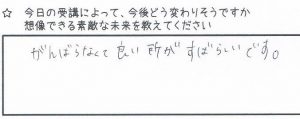 ☆ 今日の受講によって、今後どう変わりそうですか
想像できる素敵な未来を教えてください
がんばらなくて良い所がすばらしいです。